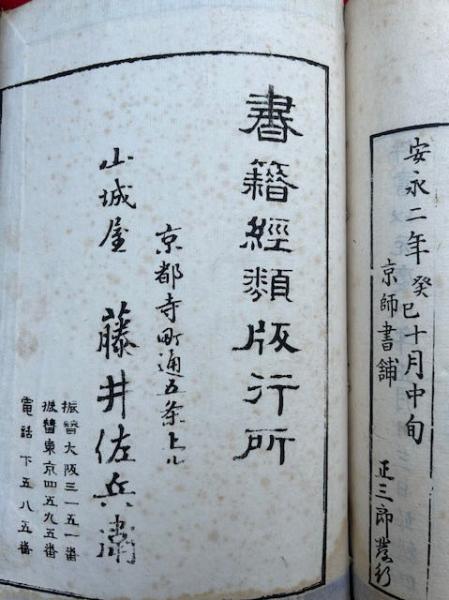 安永二年癸巳十月中旬
京師書舗
正三郎發行
書籍經類版行所
京都寺町通五条上ル
山城屋 藤井佐兵衞
振替大阪三一五一番
振替東京四五九五番
電話下五八五番